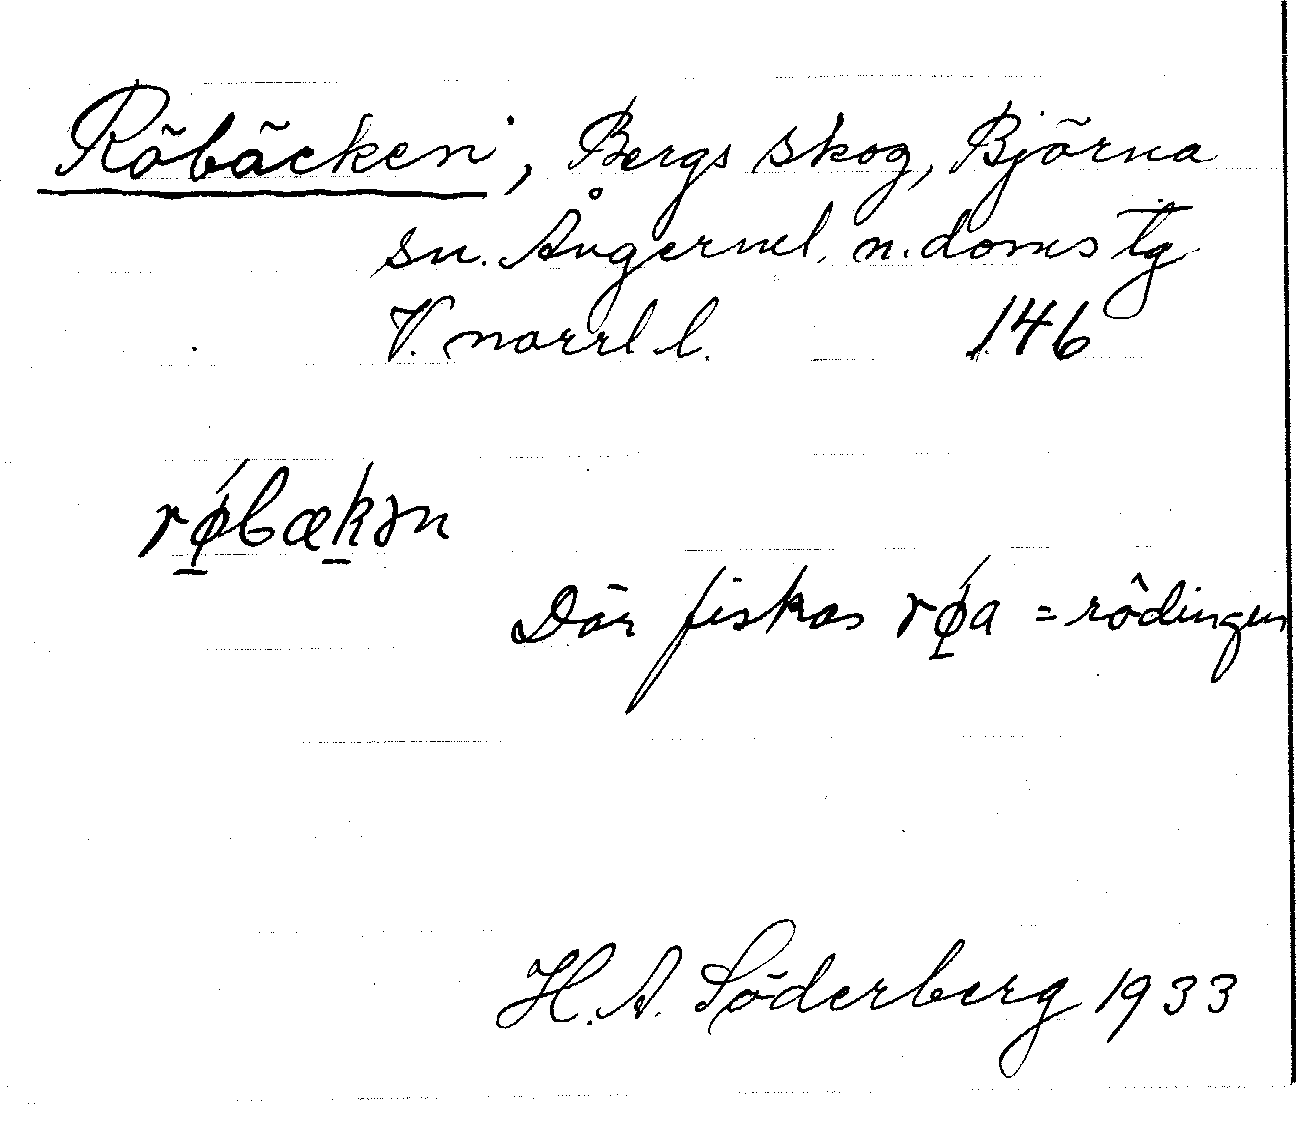 Röbäcken, Bergs skog, Björna
sn. Ångerml. n. doms tg
V. norrl l. 146
rǿbækən
Där fiskas rǿa = rödingen
H. A. Söderberg 1933